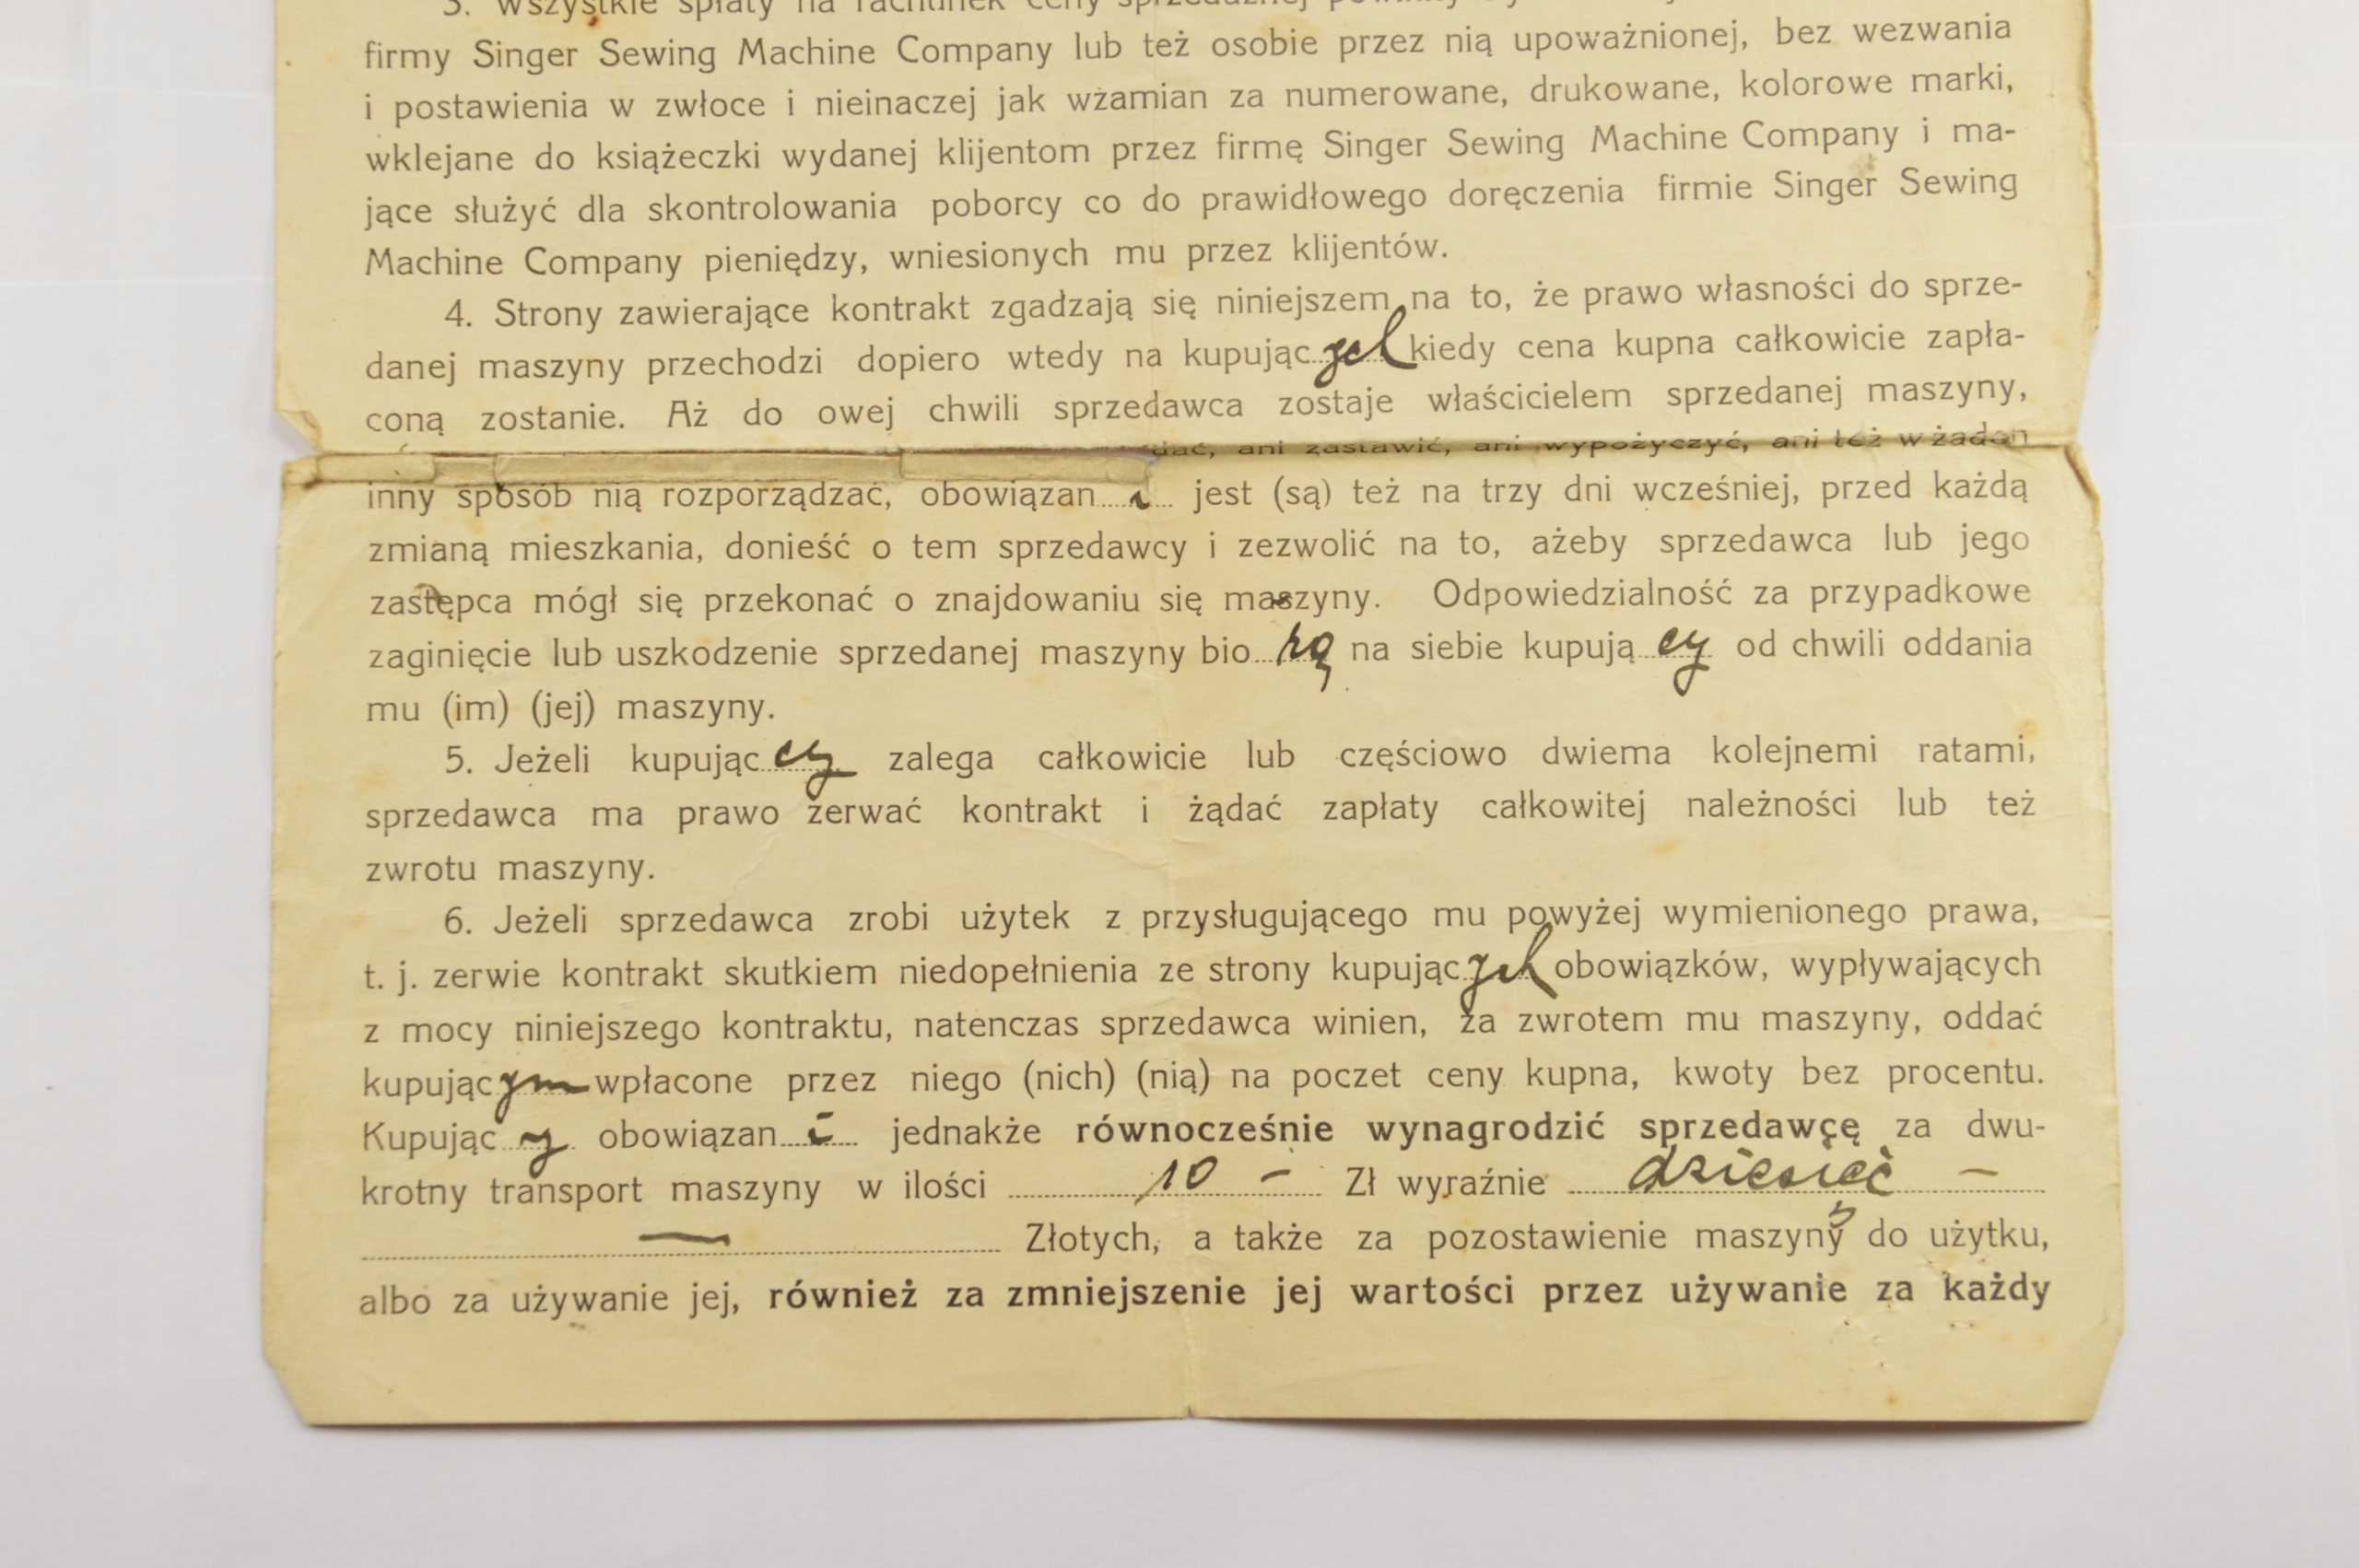 3. Wszystkie spłaty na rachunek ceny sprzedażnej
firmy Singer Sewing Machine Company lub też osobie przez nią upoważnionej, bez wezwania
i postawienia w zwłoce i nieinaczej jak wzamian za numerowane, drukowane, kolorowe marki,
wklejane do książeczki wydanej klijentom przez firmę Singer Sewing Machine Company i ma-
jące służyć dla skontrolowania poborcy co do prawidłowego doręczenia firmie Singer Sewing
Machine Company pieniędzy, wniesionych mu przez klijentów.
4. Strony zawierające kontrakt zgadzają się niniejszem na to, że prawo własności do sprze-
danej maszyny przechodzi dopiero wtedy na kupując ych kiedy cena kupna całkowicie zapła-
coną zostanie. Aż do owej chwili sprzedawca zostaje właścicielem sprzedanej maszyny,
ani zastawić, ani wypożyczyć, ani też w żaden
inny sposób nią rozporządzać, obowiązan i jest (są) też na trzy dni wcześniej, przed każdą
zmianą mieszkania, donieść o tem sprzedawcy i zezwolić na to, ażeby sprzedawca lub jego
zastępca mógł się przekonać o znajdowaniu się maszyny. Odpowiedzialność za przypadkowe
zaginięcie lub uszkodzenie sprzedanej maszyny bio rą na siebie kupują cy od chwili oddania
mu (im) (jej) maszyny.
5. Jeżeli kupując cy zalega całkowicie lub częściowo dwiema kolejnemi ratami,
sprzedawca ma prawo zerwać kontrakt i żądać zapłaty całkowitej należności lub też
zwrotu maszyny.
6. Jeżeli sprzedawca zrobi użytek z przysługującego mu powyżej wymienionego prawa,
t. j. zerwie kontrakt skutkiem niedopełnienia ze strony kupując ych obowiązków, wypływających
z mocy niniejszego kontraktu, natenczas sprzedawca winien, za zwrotem mu maszyny, oddać
kupując ym wpłacone przez niego (nich) (nią) na poczet ceny kupna, kwoty bez procentu.
Kupując y obowiązan i jednakże równocześnie wynagrodzić sprzedawcę za dwu-
krotny transport maszyny w ilości 10 – Zł wyraźnie dziesięć –
— Złotych, a także za pozostawienie maszyny do użytku,
albo za używanie jej, również za zmniejszenie jej wartości przez używanie za każdy